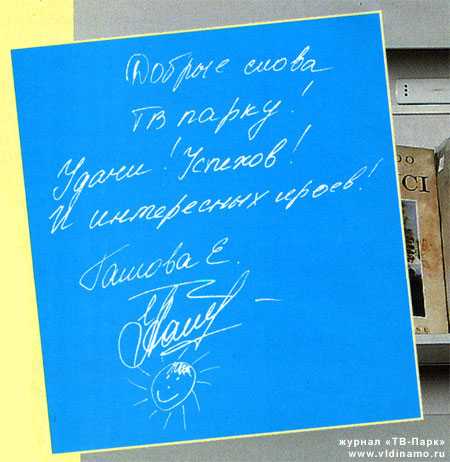 Добрые слова
ТВ парку!
Удачи! Успехов!
И интересных героев!
Гамова Е.
DO
CI
журнал «ТВ-Парк»
www.vldinamo.ru